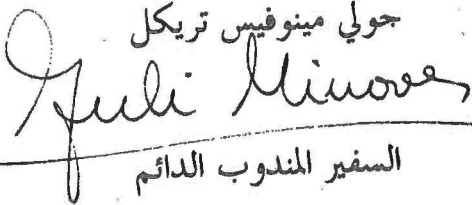 جولي مينوفيس تريكل
Juli Minoves
السفير المندوب الدائم